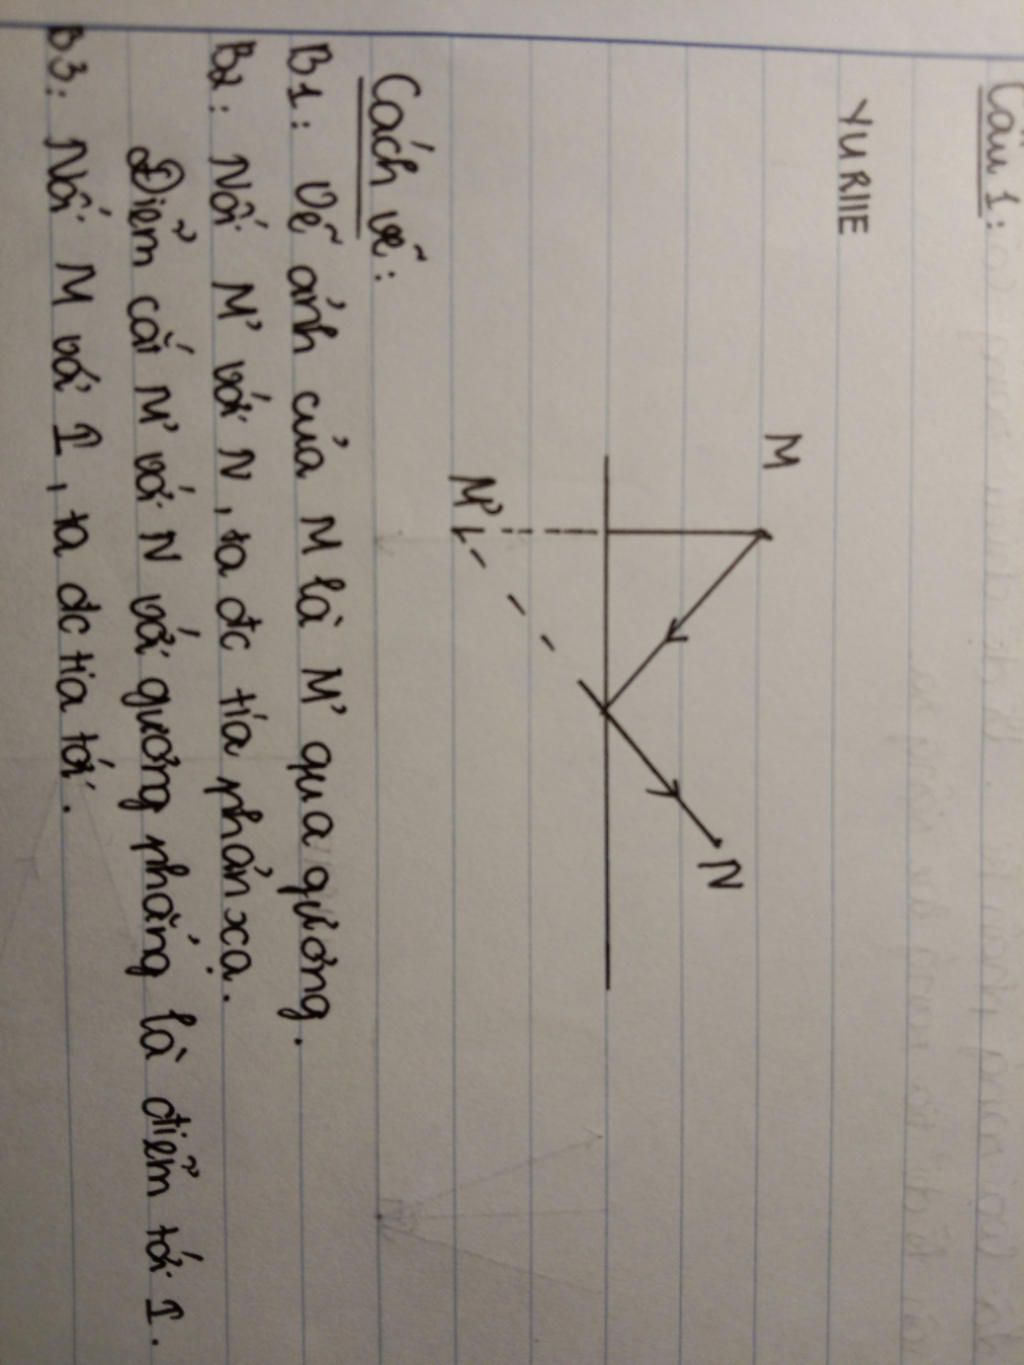 Câu 1:
YURIIE
M
N
M'
Cách vẽ:
B1: Vẽ ảnh của M là M' qua gương.
B2: Nối M' với N, ta đc tia phản xạ.
Điểm cắt M' với N với gương phẳng là điểm tới I.
B3: Nối M với I, ta đc tia tới.